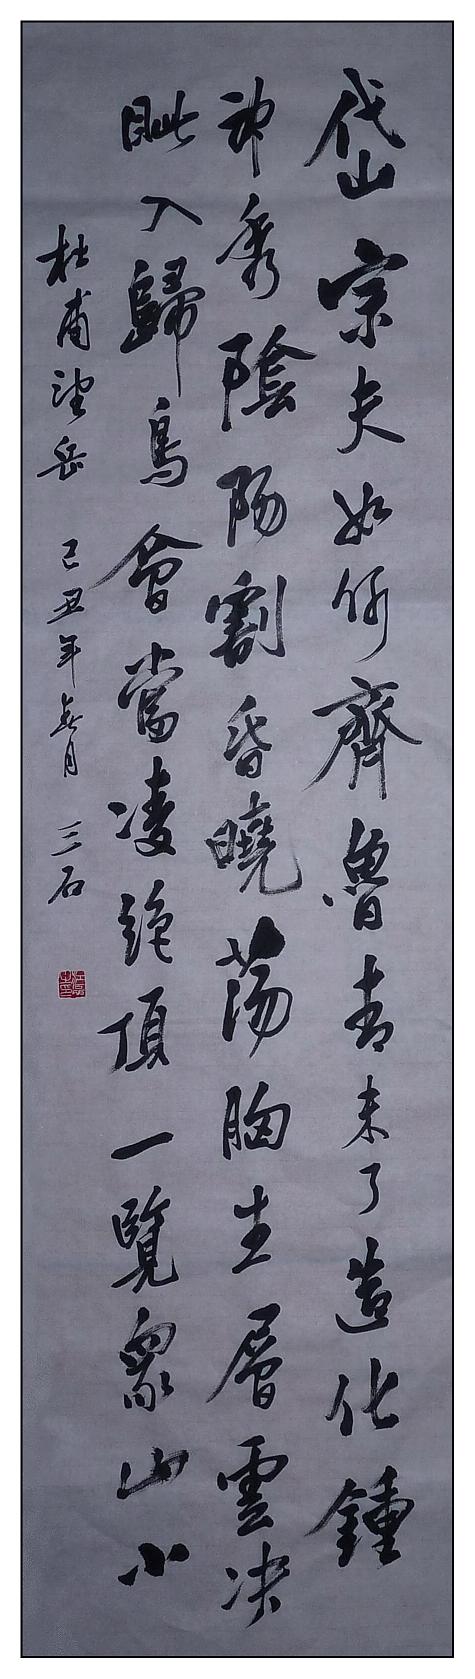 岱宗夫如何齊魯青未了造化鍾
神秀陰陽割昏曉蕩胸生層雲决
眦入歸鳥會當凌絶頂一覽衆山小
杜甫望岳 己丑年 月 三石